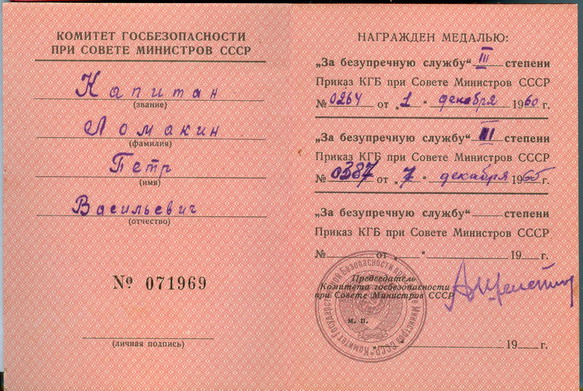 КОМИТЕТ ГОСБЕЗОПАСНОСТИ
ПРИ СОВЕТЕ МИНИСТРОВ СССР
Капитан
(звание)
Ломакин
(фамилия)
Петр
(имя)
Васильевич
(отчество)
№ 071969
(личная подпись)
НАГРАЖДЕН МЕДАЛЬЮ:
„За безупречную службу“ III степени
Приказ КГБ при Совете Министров СССР
№ 0264 от „1“ декабря 1960 г.
„За безупречную службу“ II степени
Приказ КГБ при Совете Министров СССР
№ 0387 от „7“ декабря 1965 г.
„За безупречную службу“ степени
Приказ КГБ при Совете Министров СССР
№ от „ “ 19 г.
Председатель
Комитета госбезопасности
при Совете Министров СССР
м. п.
19 г.